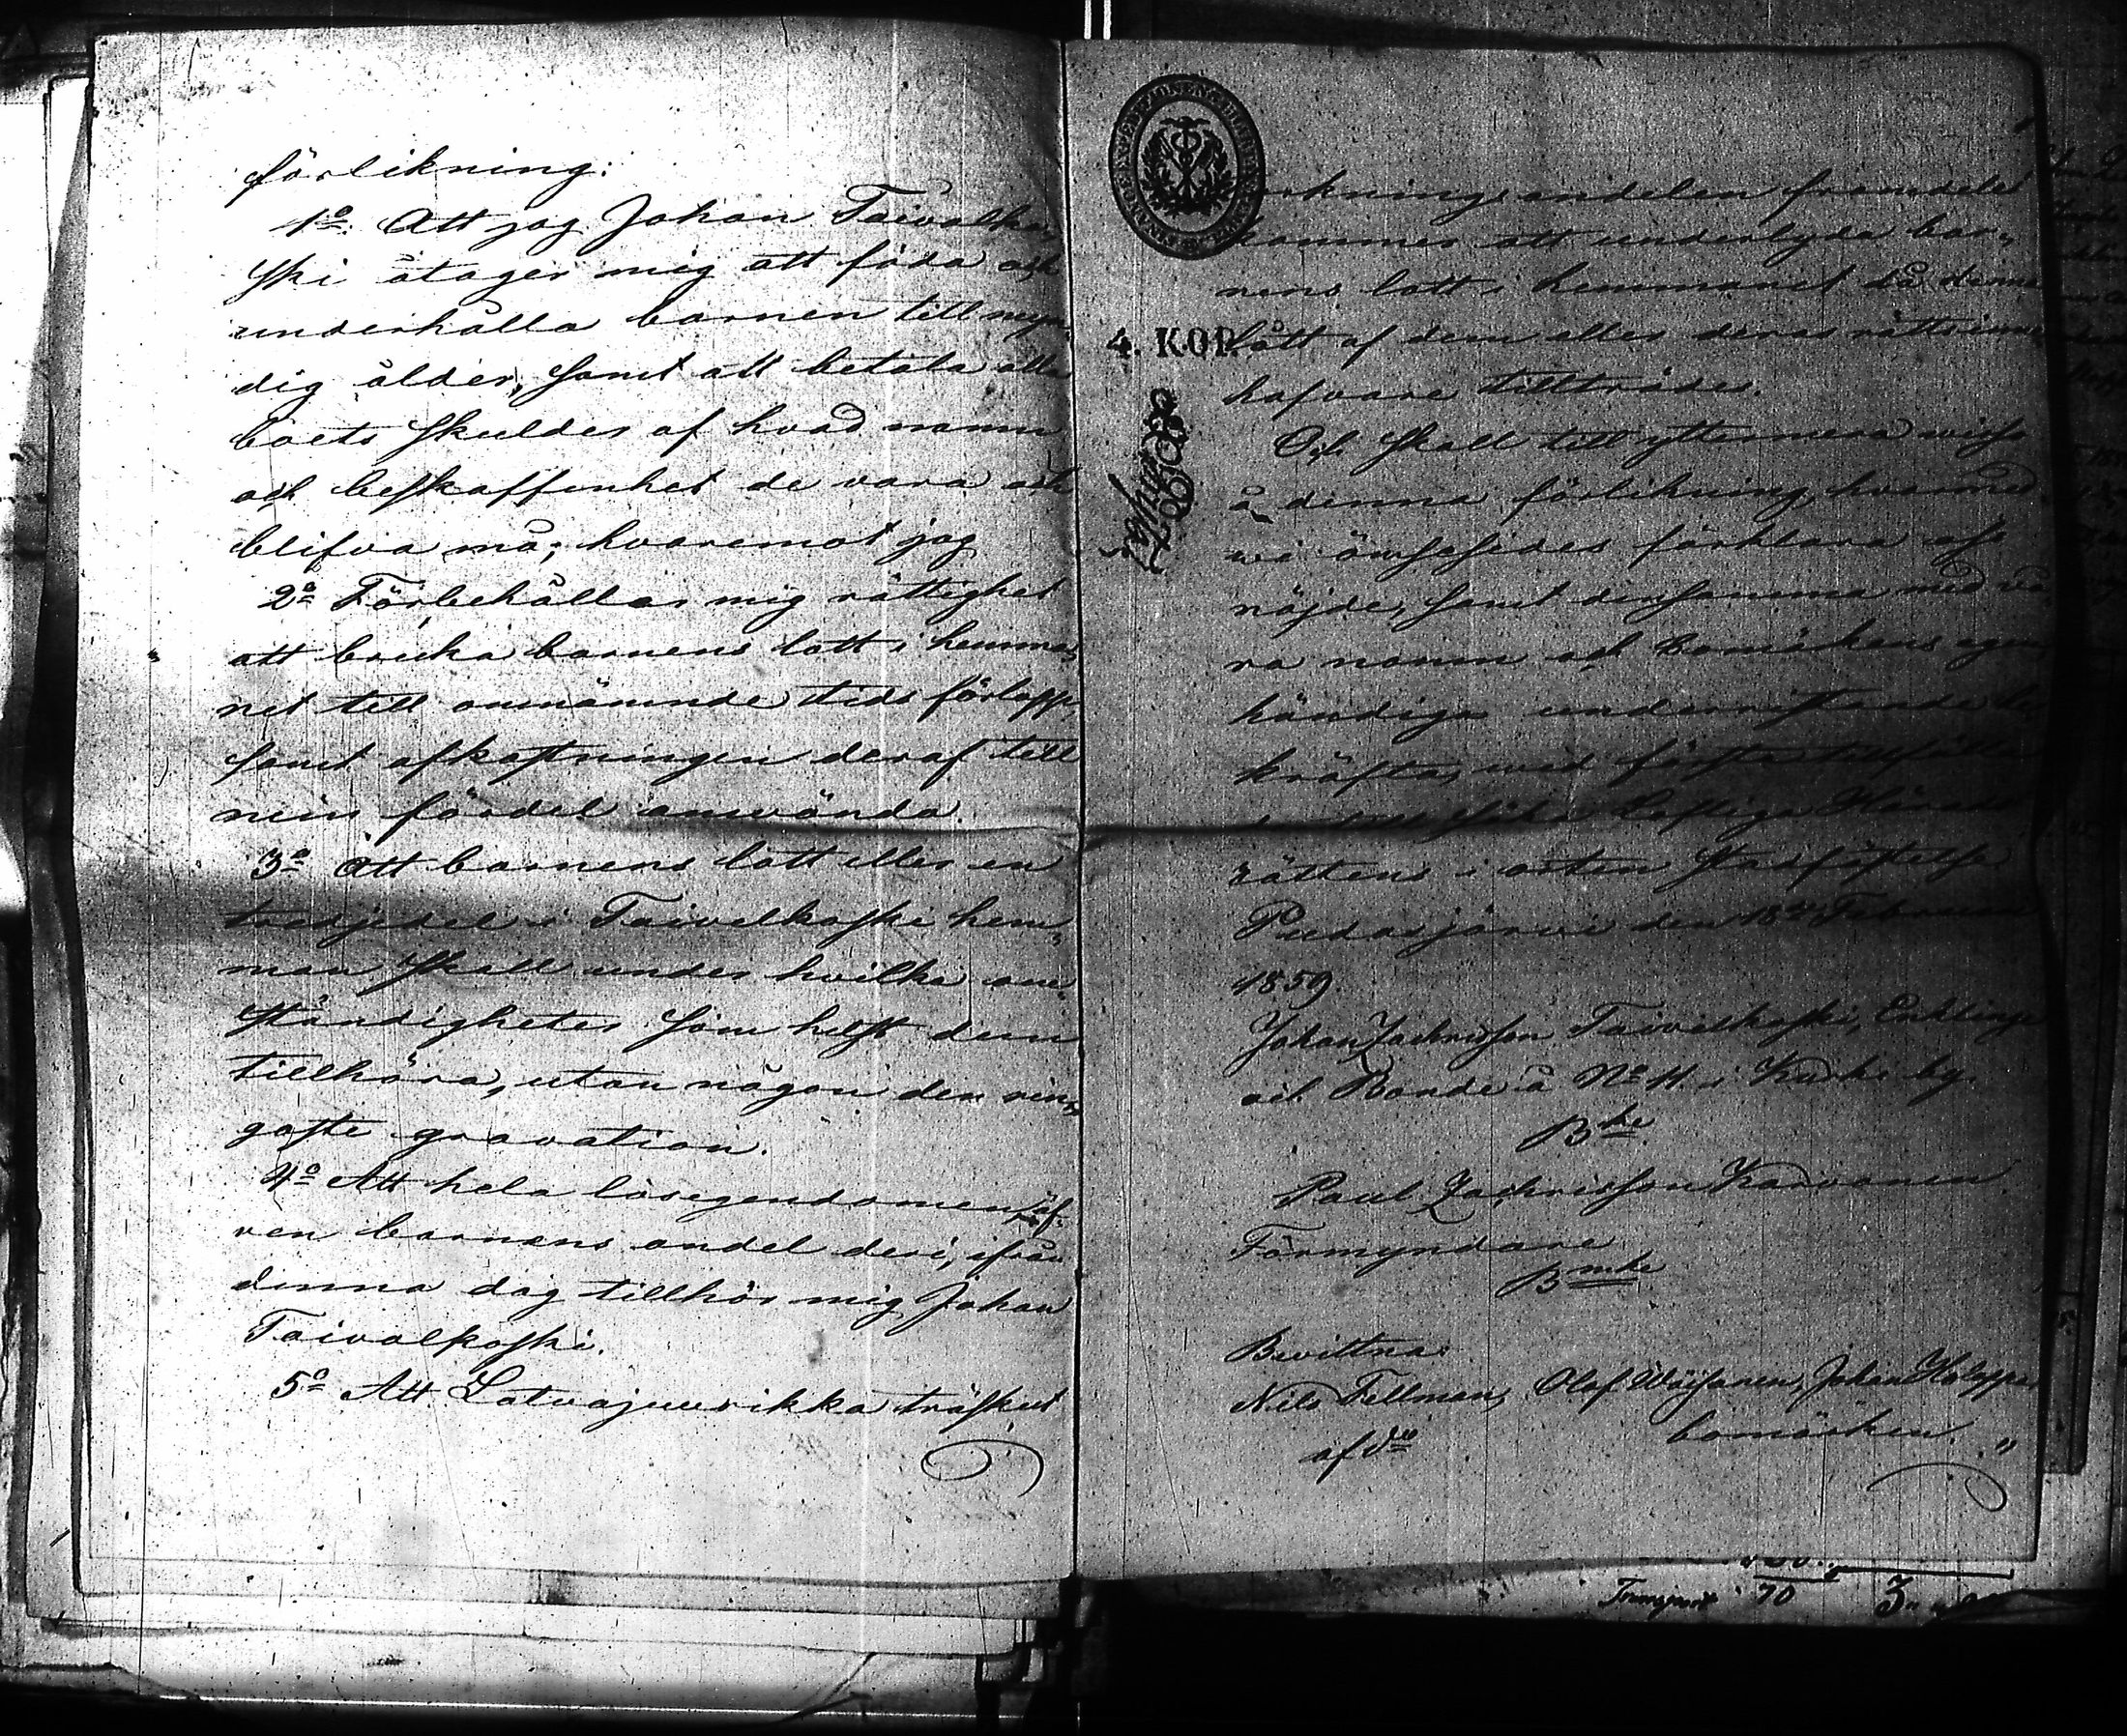 förlikning:
1o Att jag Johan Taivalko„
ski åtager mig att föda och
underhålla barnen till myn„
dig ålder, samt att betala alla
boets skulder af hvad namn
och beskaffenhet de vara och
blifva må; hvaremot jag
2o Förbehåller mig rättighet
att bruka barnens lott i hemma„
net till omnämnde tids förlopp,
samt afkastningen deraf till
min fördel använda.
3o Att barnens lott eller en
tredjedel i Taivalkoski hem„
man skall under hvilka om„
ständigheter som helst dem
tillhöra, utan någon den rin„
gaste gravation.
4o Att hela lösegendomen, äf„
ven barnens andel deri, ifrån
denna dag tillhör mig Johan
Taivalkoski.
5o Att Latvajuurikka träsket
4. KOP.
andelen framdeles
kommer att underlyda bar„
nens lott i hemmanet då denna
lått af dem eller deras rättsinne„
hafvare tillträdes.
Och skall till yttermera visso
å denna förlikning, hvarmed
vi ömsesides förklara oss
nöjde, samt densamma med vå„
ra namn och bomärkens egen„
händiga underrittande be„
kräfta, vid första tillfälle
söka Lofliga Härads
rättens i orten stadfästelse
Pudasjärvi den 18de Februari
1859.
Johan Zachrisson Taivalkoski, Enkling
och Bonde å No 11 i Kurki by.
Bke
Paul Zachrisson Karvonen
Förmyndare
Bmke
Bevittna:
Nils Fellman, Olof Wäisänen, Johan Holappa
af do bomärken. „
Transport 70 3